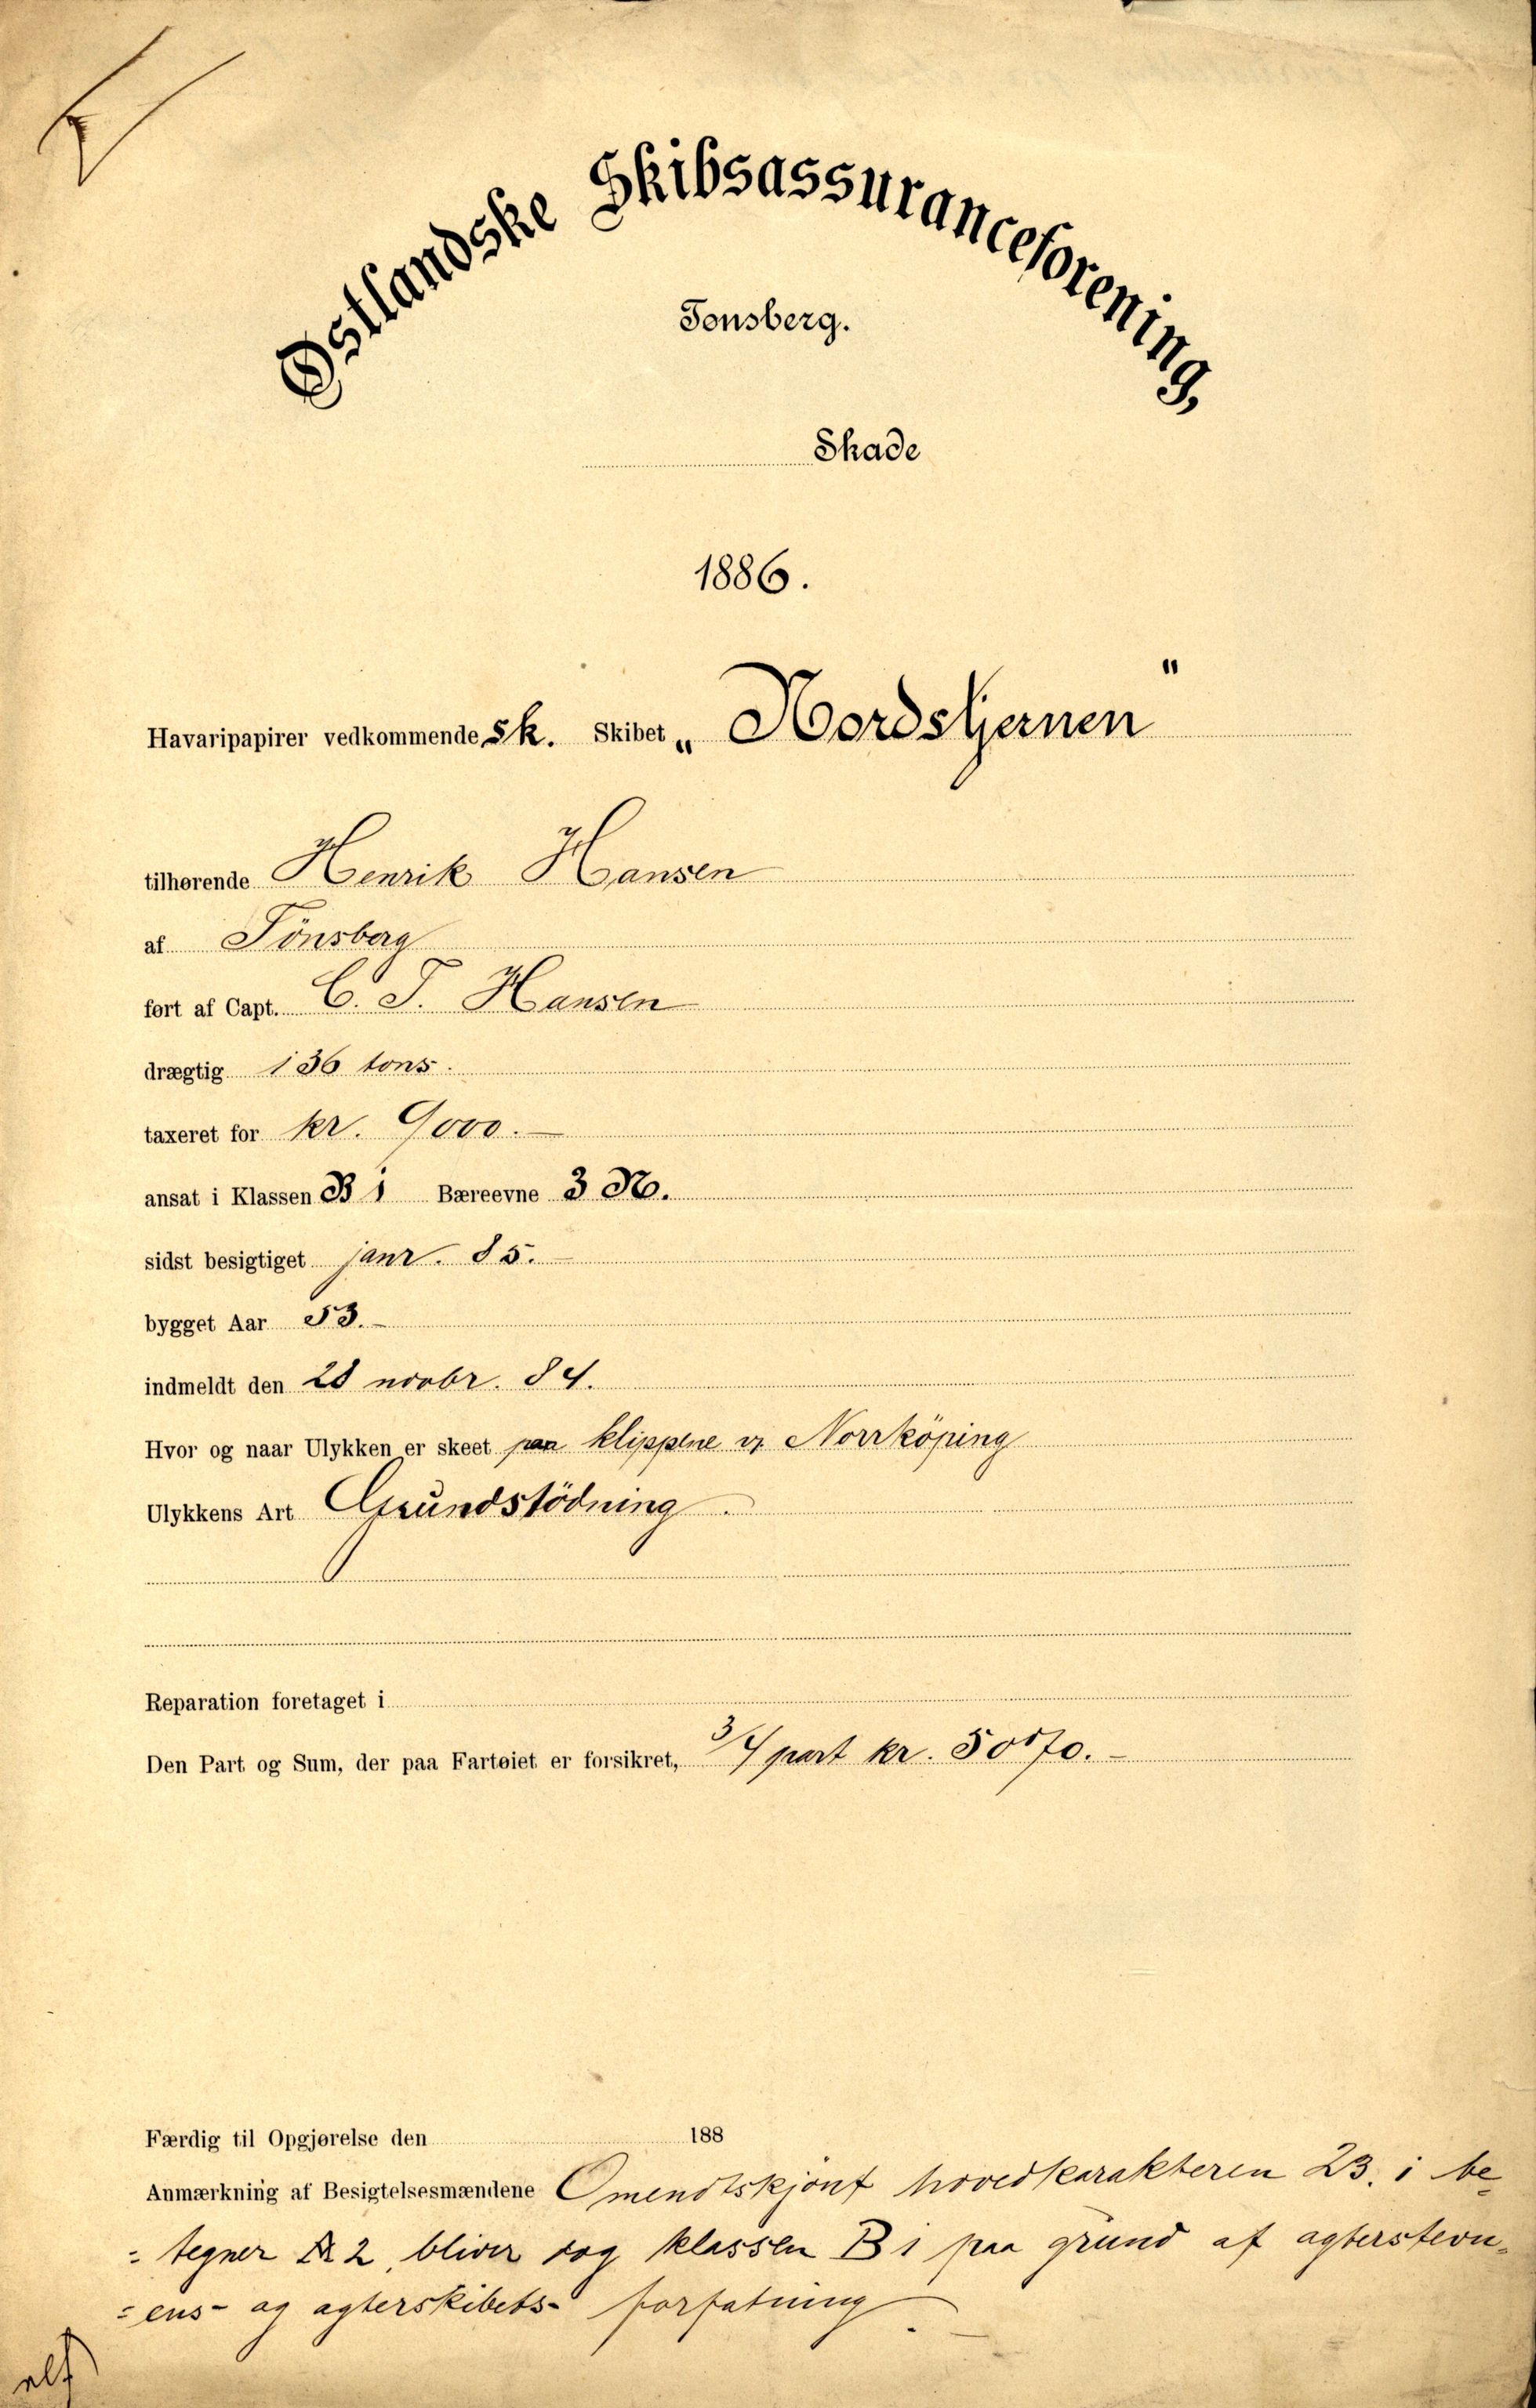 Østlandske Skibsassuranceforening,
Tønsberg.
Skade
1886.
Havaripapirer vedkommende sk. Skibet „Nordstjernen"
tilhørende Henrik Hansen
af Tönsberg
ført af Capt. C. T. Hansen
drægtig 136 tons.
taxeret for kr. 9000.—
ansat i Klassen B 1 Bæreevne 3 N.
sidst besigtiget janr. 85.—
bygget Aar 53.—
indmeldt den 28 novbr. 84.
Hvor og naar Ulykken er skeet paa klippene v. Norrköping
Ulykkens Art Grundstödning.
Reparation foretaget i
Den Part og Sum, der paa Fartøiet er forsikret, 3/4 part kr.
Færdig til Opgjørelse den 188
Anmærkning af Besigtelsesmændene Omendtskjönt hovedkarakteren 23. i be-
=tegner A 2, bliver dog klassen B 1 paa grund af agterstevn-
=ens- og agterskibets- forfatning.